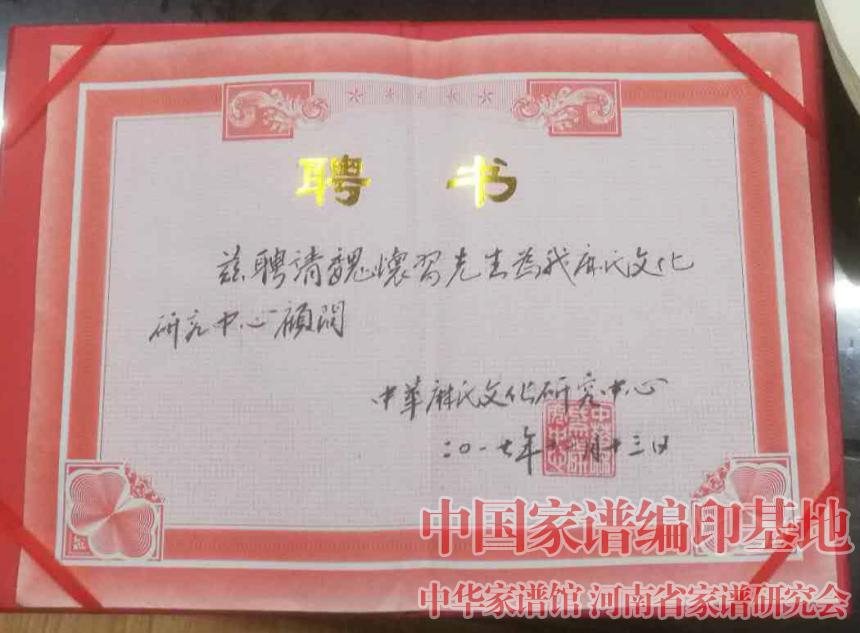 聘 书
兹聘请魏懷習先生為我麻氏文化
研究中心顧問
中華麻氏文化研究中心
二〇一七年 月十三日
中国家谱编印基地
中华家谱馆 河南省家谱研究会